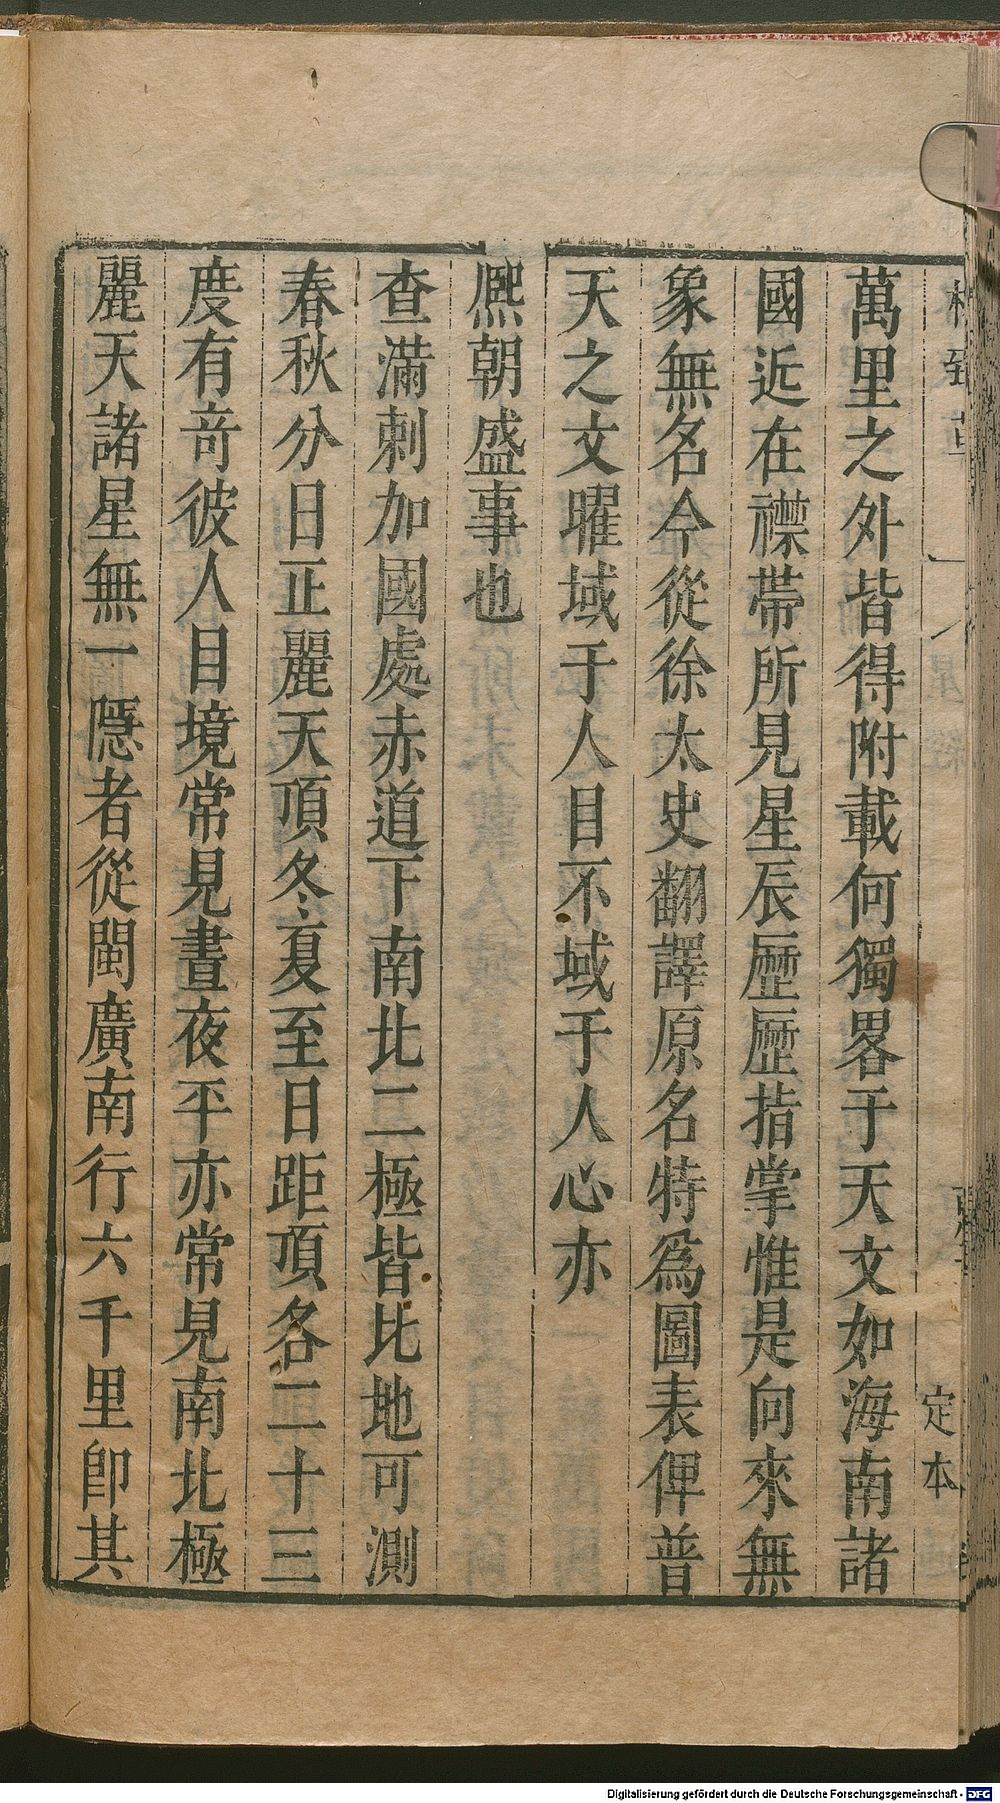 萬里之外皆得附載何獨畧于天文如海南諸
國近在襟帶所見星辰歷歷指掌惟是向來無
象無名今從徐太史翻譯原名特爲圖表俾普
天之文曜域于人目不域于人心亦
熈朝盛事也
查滿剌加國處赤道下南北二極皆比地可測
春秋分日正麗天頂冬夏至日距頂各二十三
度有竒彼人目境常見晝夜平亦常見南北極
麗天諸星無一隱者從閩廣南行六千里卽其
定本
Digitalisierung gefördert durch die Deutsche Forschungsgemeinschaft - DFG